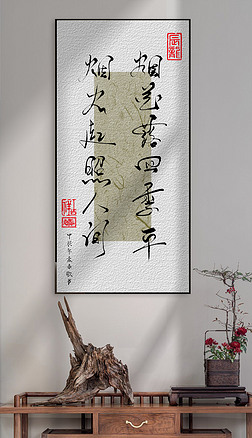 烟花落四季平
烟火起照人间